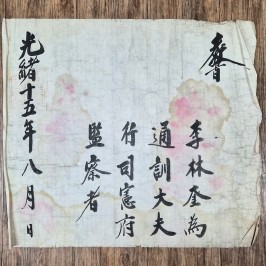 李林奎為
通訓大夫
行司憲府
監察者
光緒十五年八月日